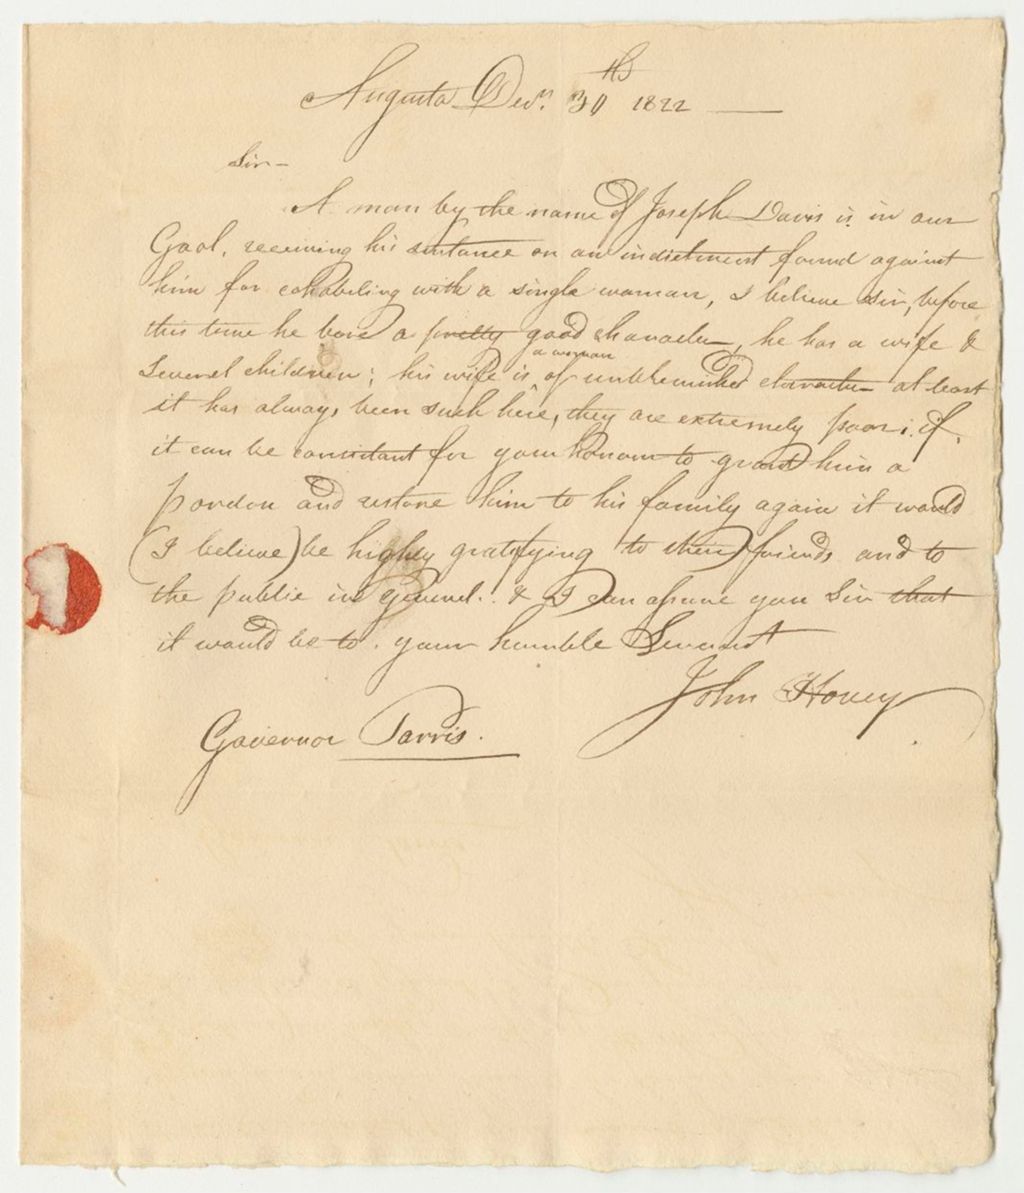 Augusta Decr. 30th 1822
Sir—
A man by the name of Joseph Davis is in our
Gaol, receiving his sentance on an indictment found against
him for cohabeling with a single woman, I believe Sir, before
this time he bore a pretty good charactu, he has a wife &
Several children; his wife is a woman of unblemished charactu at least
it has always been such here, they are extremely poor; if,
it can be consistant for your honour to grant him a
pardon and restore him to his family again it would
(I believe) be highly gratifying to their friends and to
the public in general. & I can assure you Sir that
it would be to your humble Servant
John Hovey
Governor Parris.